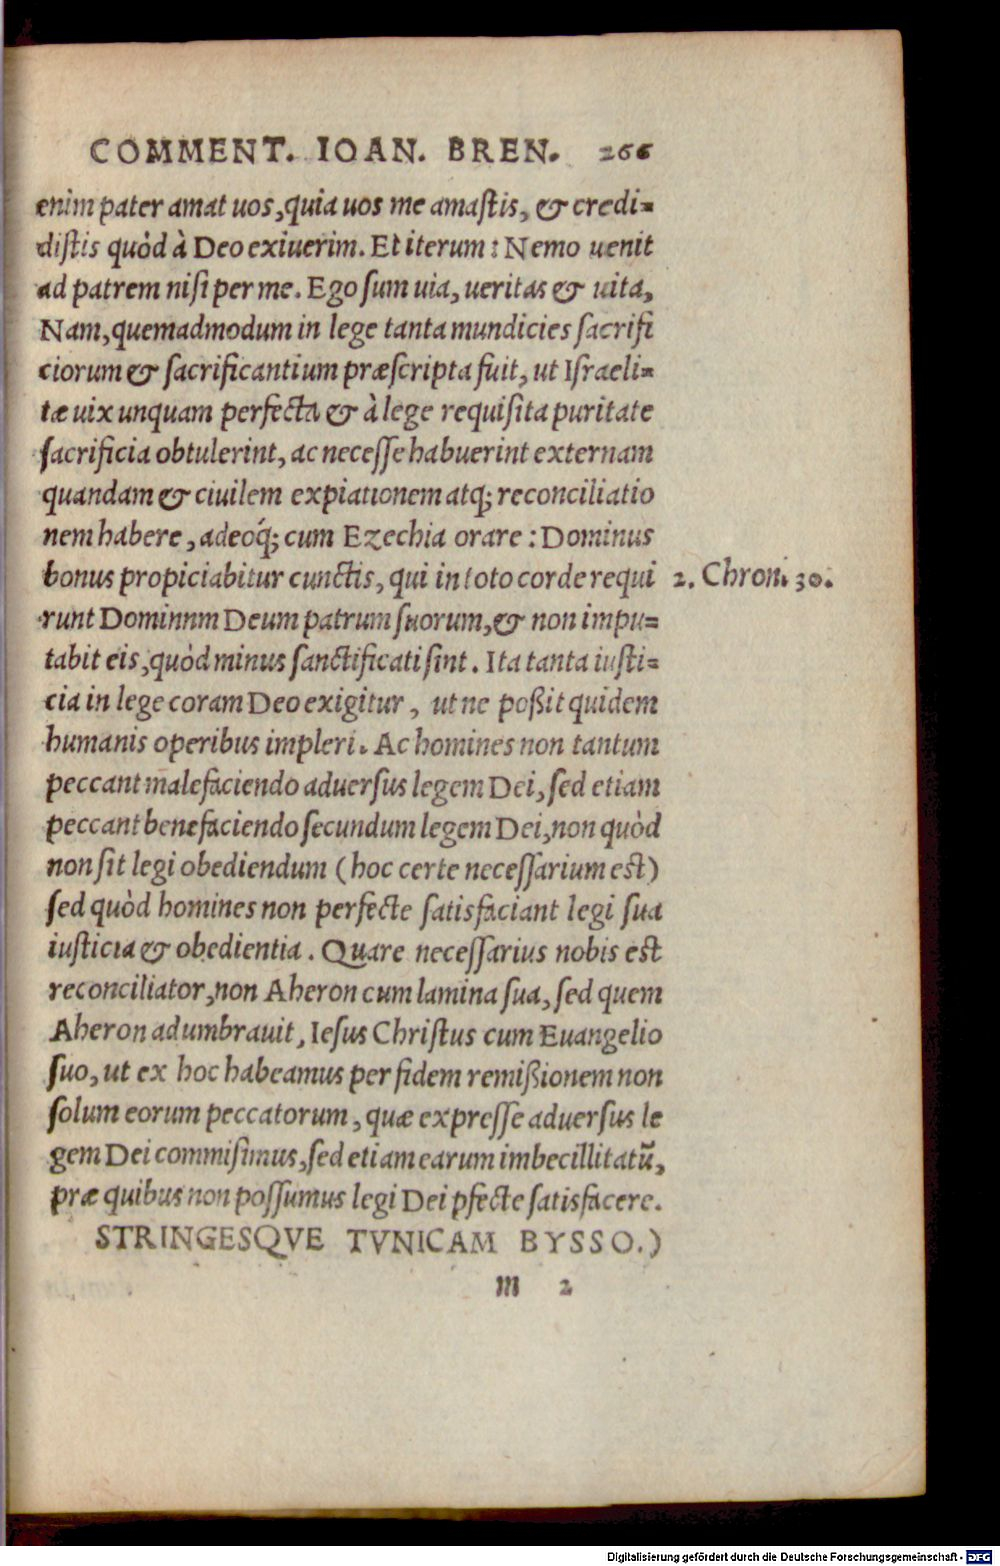 COMMENT. IOAN. BREN. 266
enim pater amat uos, quia uos me amastis, & credi=
distis quòd à Deo exiuerim. Et iterum: Nemo uenit
ad patrem nisi per me. Ego sum uia, ueritas & uita,
Nam, quemadmodum in lege tanta mundicies sacrifi
ciorum & sacrificantium præscripta fuit, ut Israeli=
tæ uix unquam perfecta & à lege requisita puritate
sacrificia obtulerint, ac necesse habuerint externam
quandam & ciuilem expiationem atq; reconciliatio
nem habere, adeoq́; cum Ezechia orare: Dominus
bonus propiciabitur cunctis, qui in toto corde requi
2. Chron. 30.
runt Dominnm Deum patrum suorum, & non impu=
tabit eis, quòd minus sanctificati sint. Ita tanta iusti=
cia in lege coram Deo exigitur, ut ne poßit quidem
humanis operibus impleri. Ac homines non tantum
peccant malefaciendo aduersus legem Dei, sed etiam
peccant benefaciendo secundum legem Dei, non quòd
non sit legi obediendum (hoc certe necessarium est)
sed quòd homines non perfecte satisfaciant legi sua
iusticia & obedientia. Quare necessarius nobis est
reconciliator, non Aheron cum lamina sua, sed quem
Aheron adumbrauit, Iesus Christus cum Euangelio
suo, ut ex hoc habeamus per fidem remißionem non
solum eorum peccatorum, quæ expresse aduersus le
gem Dei commisimus, sed etiam earum imbecillitatũ,
præ quibus non possumus legi Dei pfecte satisfacere.
STRINGESQVE TVNICAM BYSSO.)
m 2
Digitalisierung gefördert durch die Deutsche Forschungsgemeinschaft - DFG